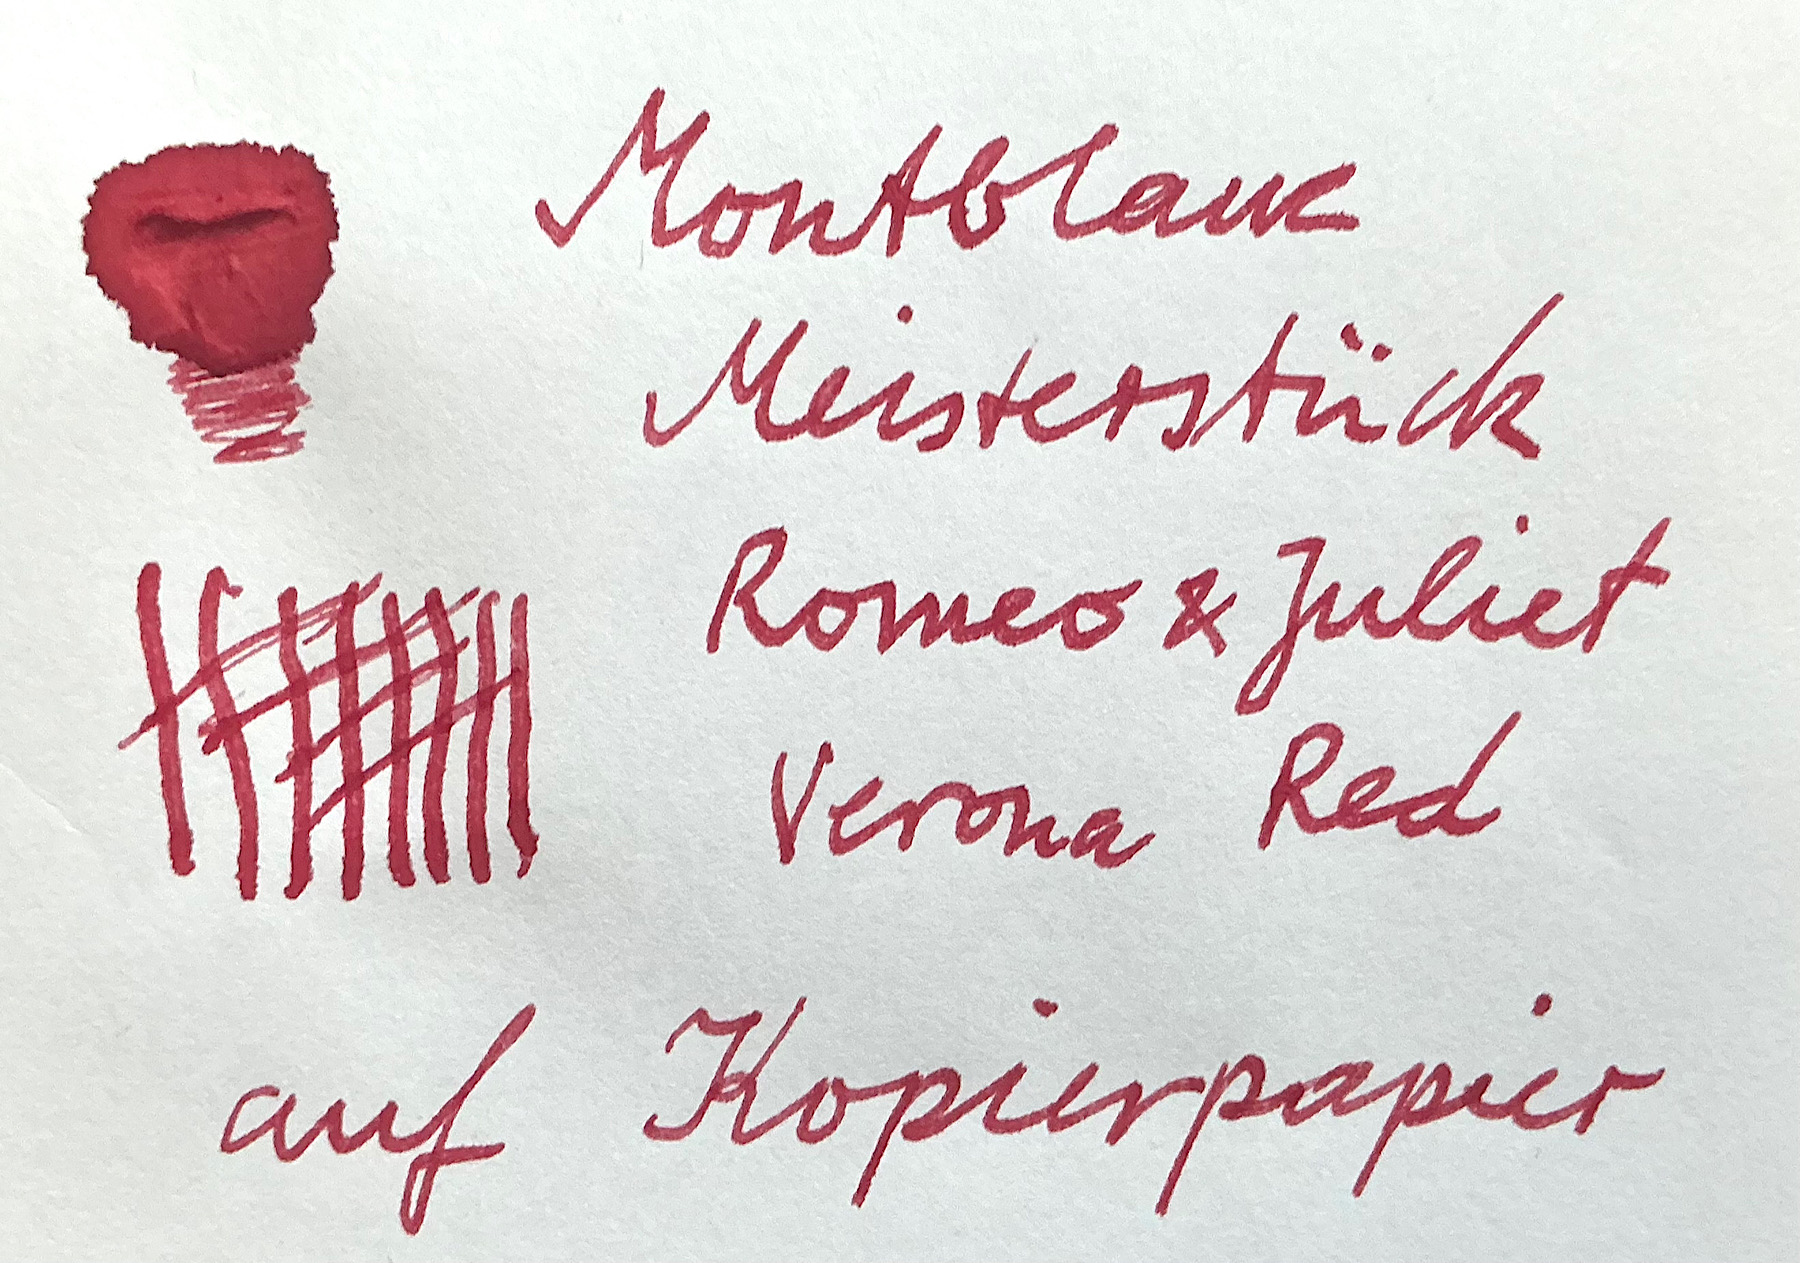 Montblanc
Meisterstück
Romeo & Juliet
Verona Red
auf Kopierpapier